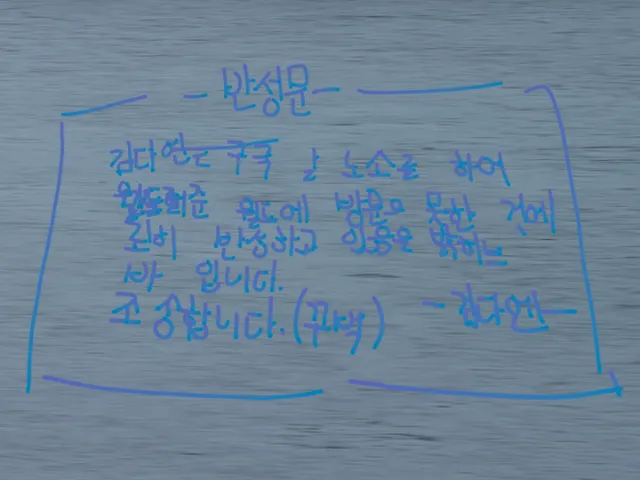 - 반성문 -
김다연은 구국 날 노소를 하여
월드에 방문으 못한 것에
반성하고 있음은 밝히느
바 입니다.
조송합니다.(꾸벅) - 김다엔 -